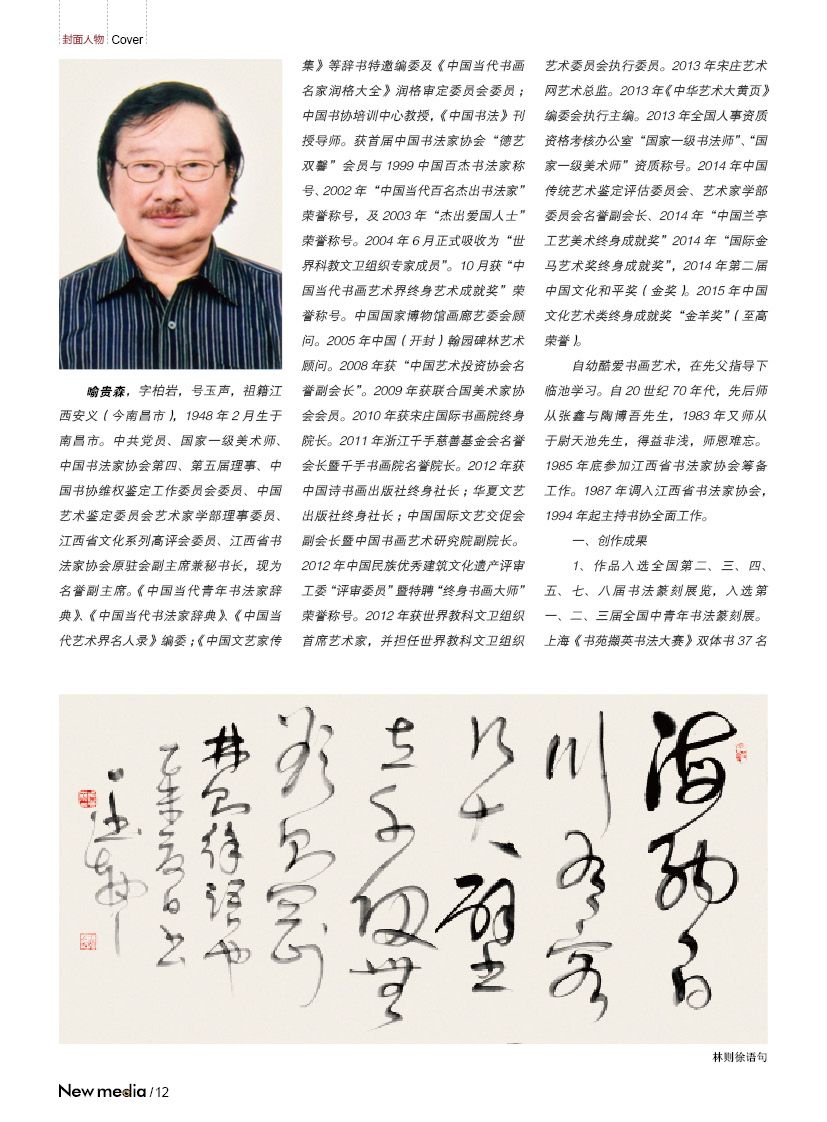 封面人物 Cover
喻贵森，字柏岩，号玉声，祖籍江
西安义（今南昌市），1948 年 2 月生于
南昌市。中共党员、国家一级美术师、
中国书法家协会第四、第五届理事、中
国书协维权鉴定工作委员会委员、中国
艺术鉴定委员会艺术家学部理事委员、
江西省文化系列高评会委员、江西省书
法家协会原驻会副主席兼秘书长，现为
名誉副主席。《中国当代青年书法家辞
典》、《中国当代书法家辞典》、《中国当
代艺术界名人录》编委；《中国文艺家传
集》等辞书特邀编委及《中国当代书画
名家润格大全》润格审定委员会委员；
中国书协培训中心教授，《中国书法》刊
授导师。获首届中国书法家协会“德艺
双馨”会员与 1999 中国百杰书法家称
号、2002 年“中国当代百名杰出书法家”
荣誉称号，及 2003 年“杰出爱国人士”
荣誉称号。2004 年 6 月正式吸收为“世
界科教文卫组织专家成员”。10 月获“中
国当代书画艺术界终身艺术成就奖”荣
誉称号。中国国家博物馆画廊艺委会顾
问。2005 年中国（开封）翰园碑林艺术
顾问。2008 年获“中国艺术投资协会名
誉副会长”。2009 年获联合国美术家协
会会员。2010 年获宋庄国际书画院终身
院长。2011 年浙江千手慈善基金会名誉
会长暨千手书画院名誉院长。2012 年获
中国诗书画出版社终身社长；华夏文艺
出版社终身社长；中国国际文艺交促会
副会长暨中国书画艺术研究院副院长。
2012 年中国民族优秀建筑文化遗产评审
工委“评审委员”暨特聘“终身书画大师”
荣誉称号。2012 年获世界教科文卫组织
首席艺术家，并担任世界教科文卫组织
艺术委员会执行委员。2013 年宋庄艺术
网艺术总监。2013 年《中华艺术大黄页》
编委会执行主编。2013 年全国人事资质
资格考核办公室“国家一级书法师”、“国
家一级美术师”资质称号。2014 年中国
传统艺术鉴定评估委员会、艺术家学部
委员会名誉副会长、2014 年“中国兰亭
工艺美术终身成就奖”2014 年“国际金
马艺术奖终身成就奖”，2014 年第二届
中国文化和平奖（金奖）。2015 年中国
文化艺术类终身成就奖“金羊奖”（至高
荣誉）。
自幼酷爱书画艺术，在先父指导下
临池学习。自 20 世纪 70 年代，先后师
从张鑫与陶博吾先生，1983 年又师从
于尉天池先生，得益非浅，师恩难忘。
1985 年底参加江西省书法家协会筹备
工作。1987 年调入江西省书法家协会，
1994 年起主持书协全面工作。
一、创作成果
1、作品入选全国第二、三、四、
五、七、八届书法篆刻展览，入选第
一、二、三届全国中青年书法篆刻展。
上海《书苑撷英书法大赛》双体书 37 名
海纳百
川有容
乃大壁
立千仞无
欲则刚
林则徐语也
乙未夏日书
林则徐语句
New media / 12